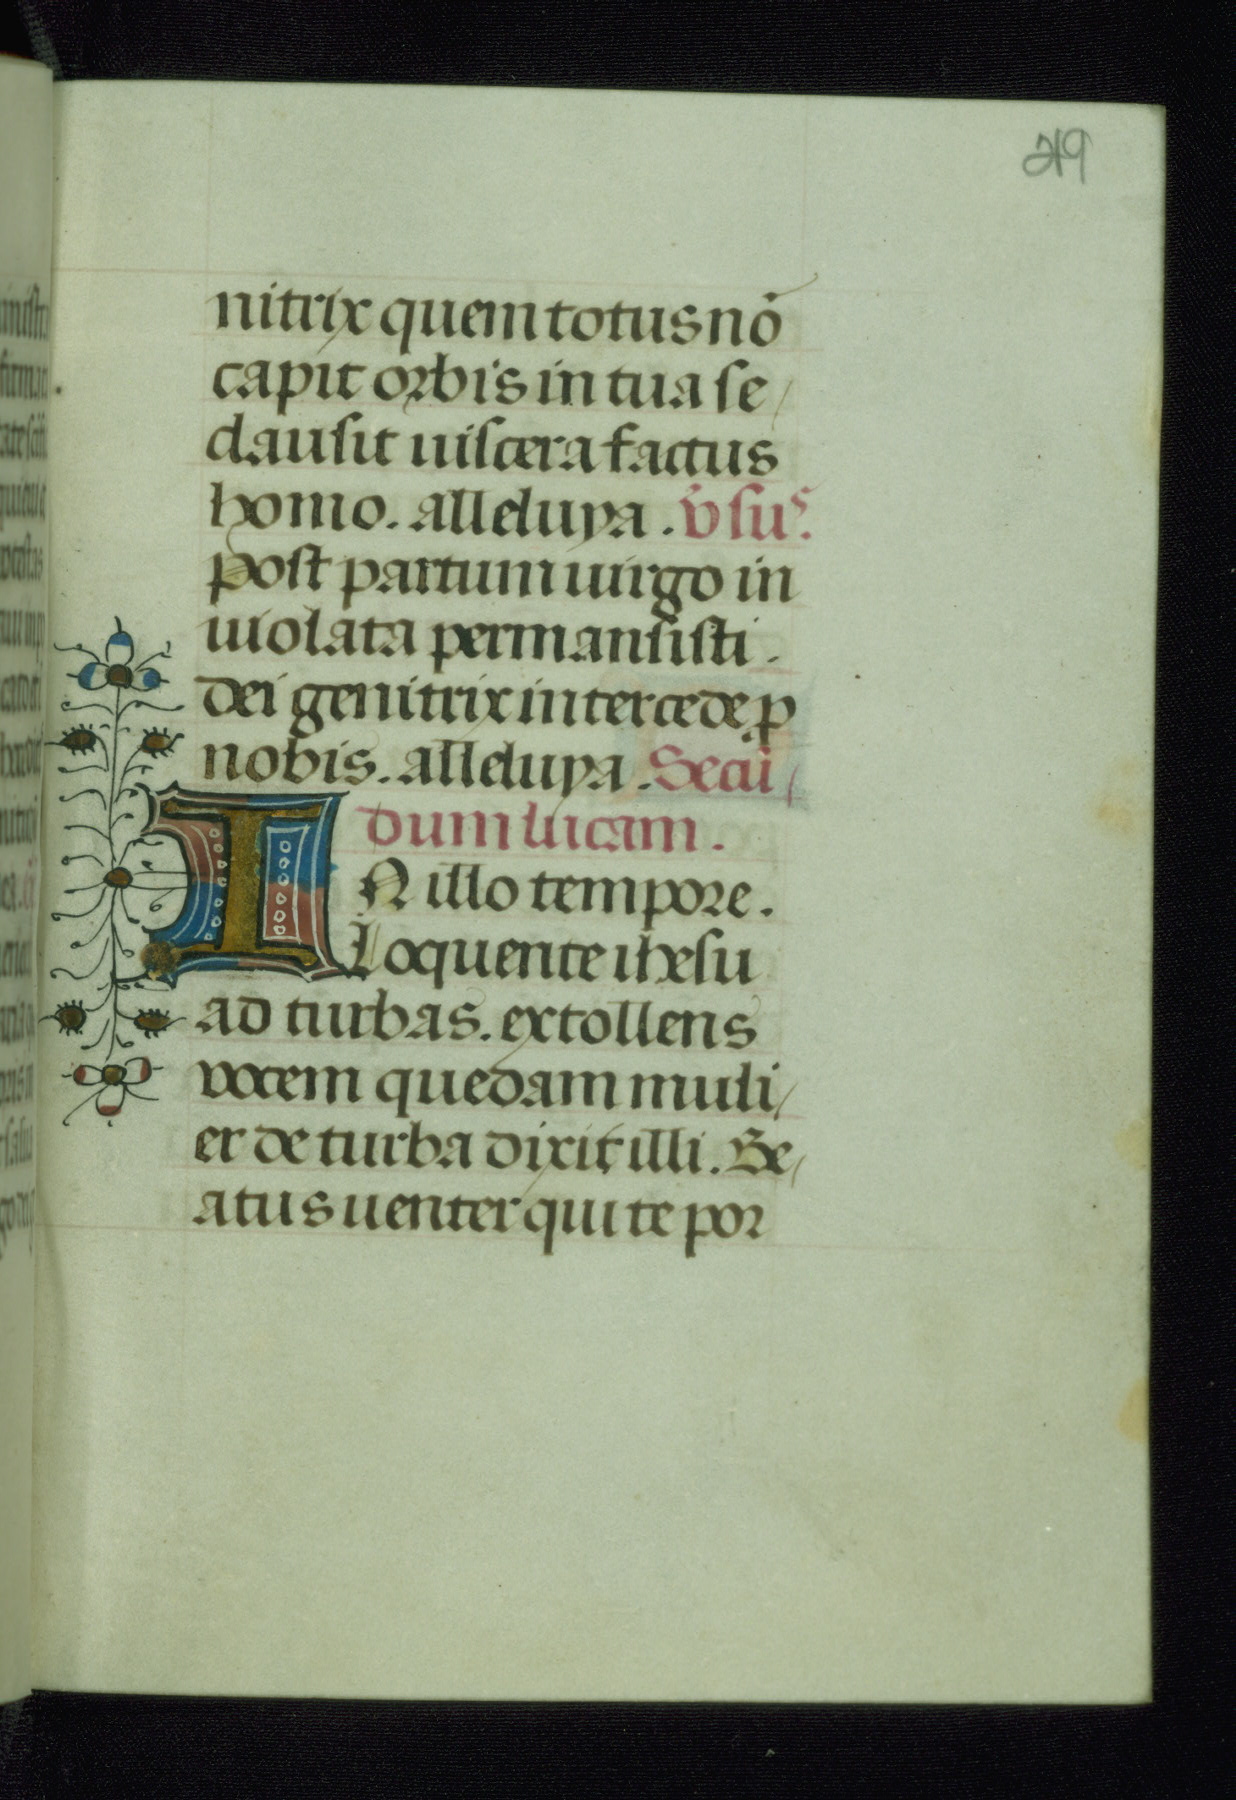 219
nitrix quem totus nō
capit orbis in tua se
clausit uiscera factus
homo. alleluya. v̄sus.
post partum uirgo in
uiolata permansisti.
dei genitrix intercede ꝓ
nobis. alleluya. Secū
dum lucam.
IN illo tempore.
Loquente ihesu
ad turbas. extollens
vocem quedam muli
er de turba dixit illi. Be
atus uenter qui te por